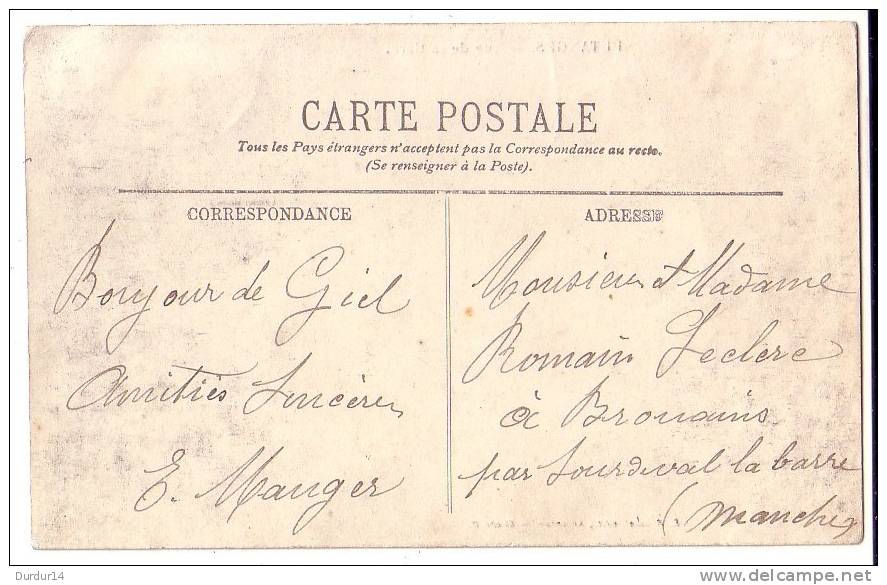 CARTE POSTALE
Tous les Pays étrangers n'acceptent pas la Correspondance au recto.
(Se renseigner à la Poste).
CORRESPONDANCE
Bonjour de Giel
Amitiés Sincères
E. Mauger
ADRESSE
Monsieur et Madame
Romain Leclerc
à Brouains
par Sourdeval la barre
(Manche)
Durdur14
delcampe.net